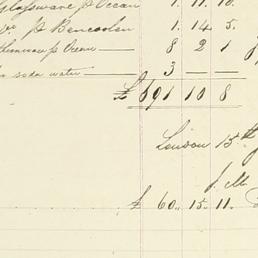 Glassware p Ocean 1. 11. 10.
p Bencoolen 1. 14. 5.
p Ocean — 8 2 1
soda water — 3 — —
£ 691 10 8
London 15th
£ 60.. 15.. 11.